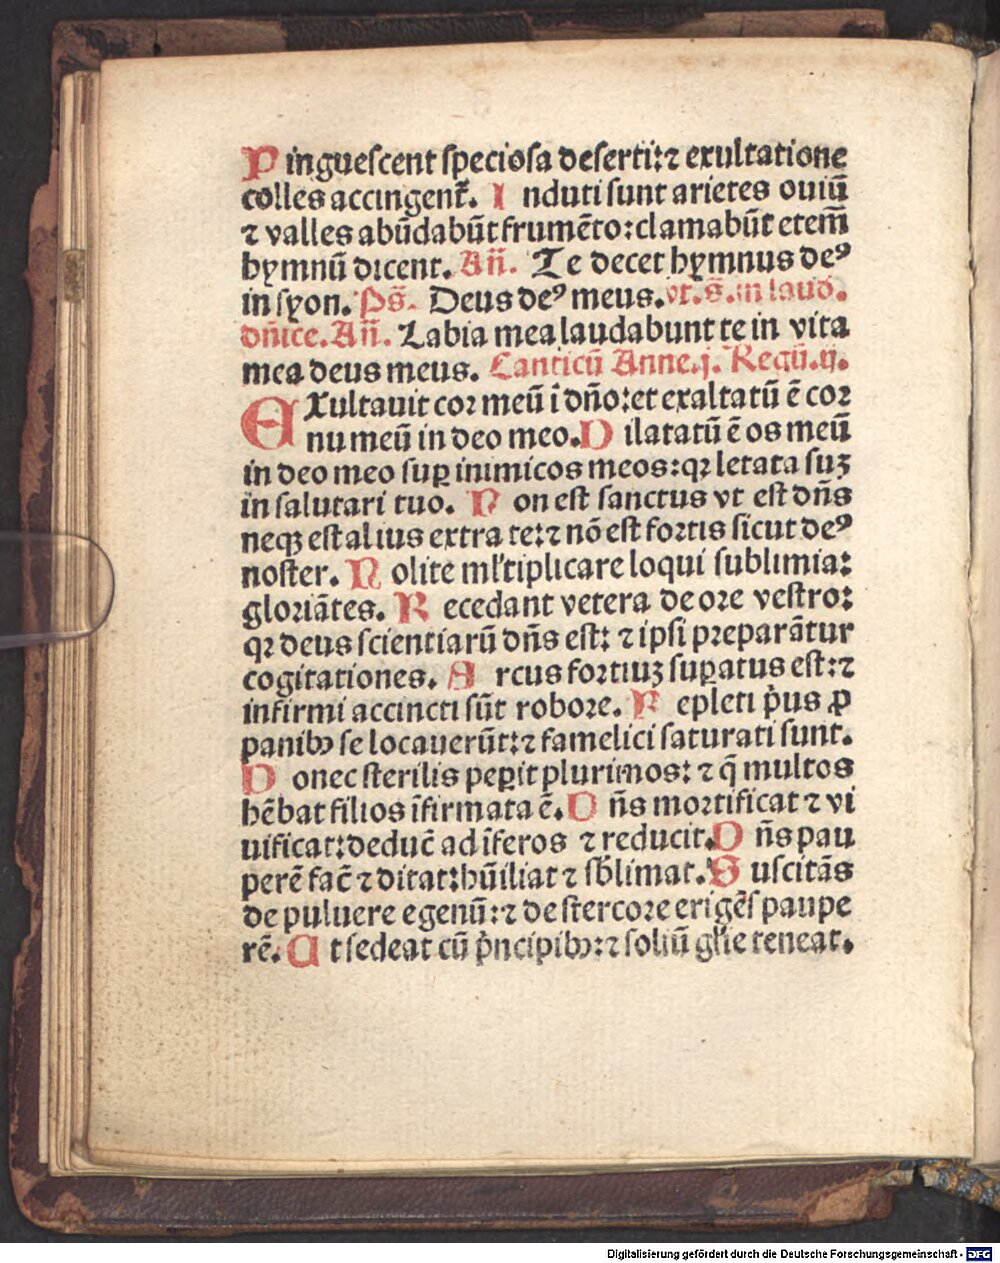 Pinguescent speciosa deserti: ⁊ exultatione
colles accingent᷑. Induti sunt arietes ouiū
⁊ valles abūdabūt frumēto: clamabūt etem̄
hymnū dicent. Añ. Te decet hymnus deꝰ
in syon. Ps̄. Deus deꝰ meus. vt. s̄. in laud.
dn̄ice. Añ. Labia mea laudabunt te in vita
mea deus meus. Canticū Anne. j. Regū. ij.
EXultauit cor meū ī dn̄o: et exaltatū ē cor
nu meū in deo meo. Dilatatū ē os meū
in deo meo suꝑ inimicos meos: qꝛ letata suꝫ
in salutari tuo. Non est sanctus vt est dn̄s
neqꝫ est alius extra te: ⁊ nō est fortis sicut deꝰ
noster. Nolite ml̄tiplicare loqui sublimia:
gloriātes. Recedant vetera de ore vestro:
qꝛ deus scientiarū dn̄s est: ⁊ ipsi preparātur
cogitationes. Arcus fortiuꝫ suꝑatus est: ⁊
infirmi accincti sūt robore. Repleti p̄us ꝓ
panibꝰ se locauerūt: ⁊ famelici saturati sunt.
Donec sterilis peꝑit plurimos: ⁊ q̄ multos
hēbat filios īfirmata ē. Dn̄s mortificat ⁊ vi
uificat: deduc̄ ad īferos ⁊ reducit. Dn̄s pau
perē fac̄ ⁊ ditat: hūiliat ⁊ sb̄limat. Suscitās
de puluere egenū: ⁊ de stercore erigēs paupe
rē. Ut sedeat cū p̄ncipibꝰ: ⁊ soliū gl̄ie teneat.
Digitalisierung gefördert durch die Deutsche Forschungsgemeinschaft - DFG